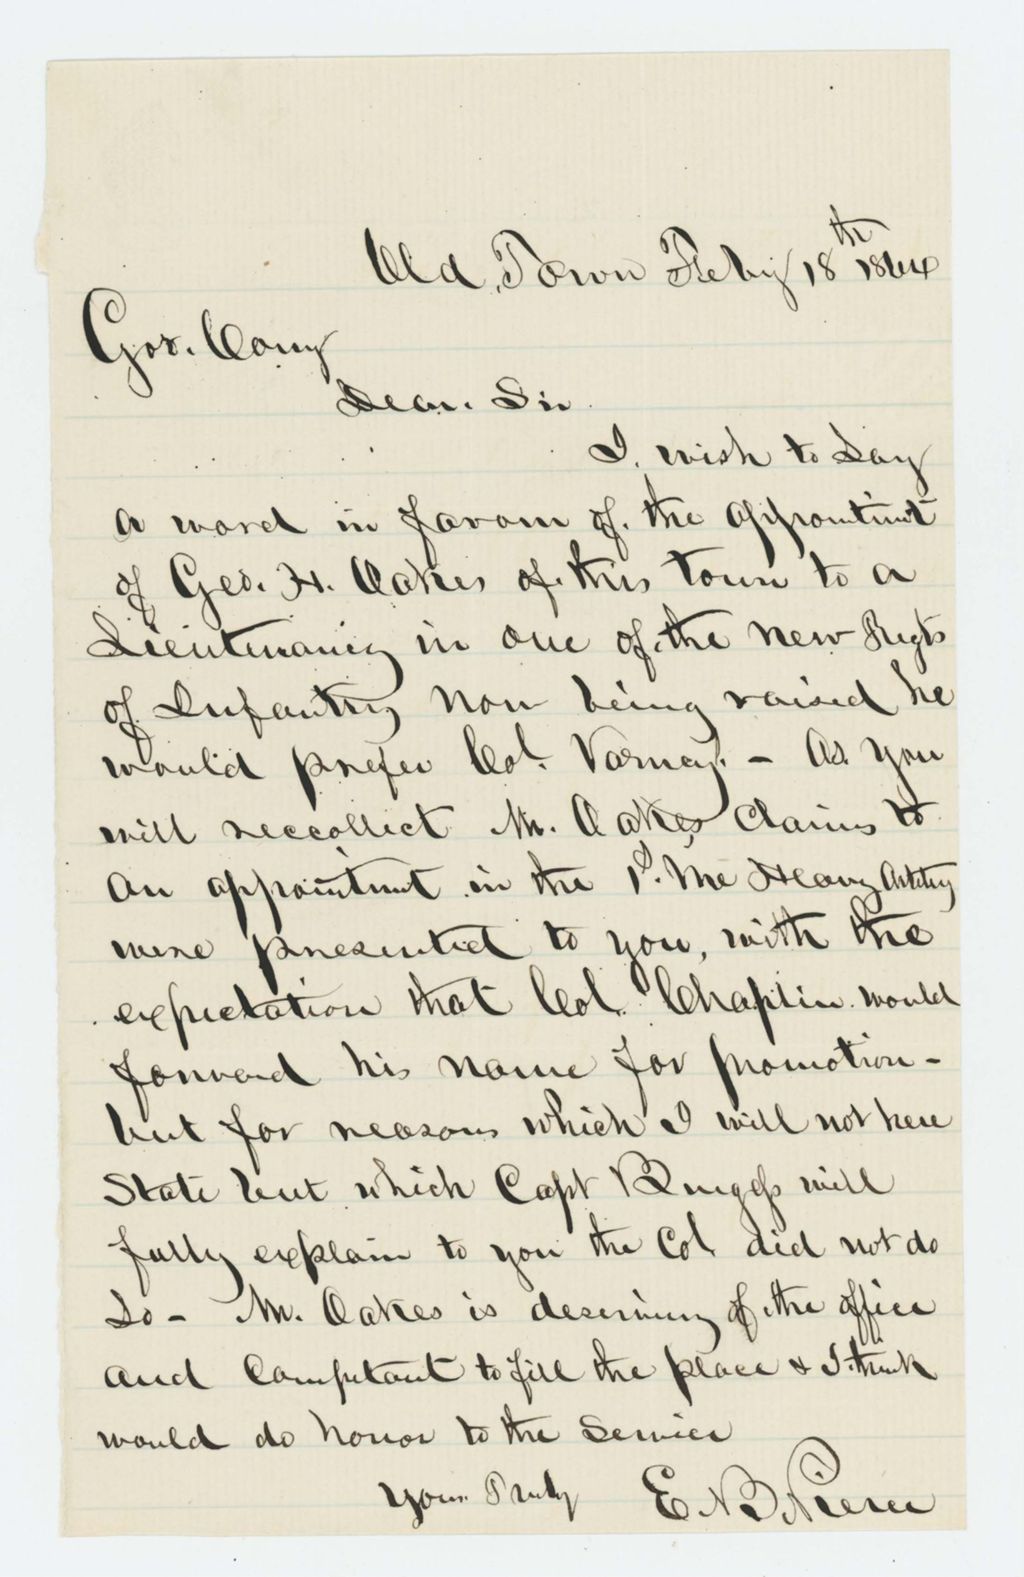 Old Town Feby 18th 1864
Gov. Cony
Dear. Sir
I wish to Say
a word in favour of. the appointmt
of Geo. H. Oakes of this town to a
Lieutenancy in one of the new Regts
of Infantry now being raised he
would prefer Col. Varney. - As you
will reccollect Mr. Oakes Claims to
an appointmt in the 1st. Me Heavy Artilry
were presented to you, with the
expectation that Col. Chaplin would
forward his name for promotion -
but for reasons which I will not here
State but which Capt Burgess will
fully explain to you the Col did not do
So - Mr. Oakes is deserving of the office
and Compitant to fill the place & I think
would do honor to the Service
Yours Truly E